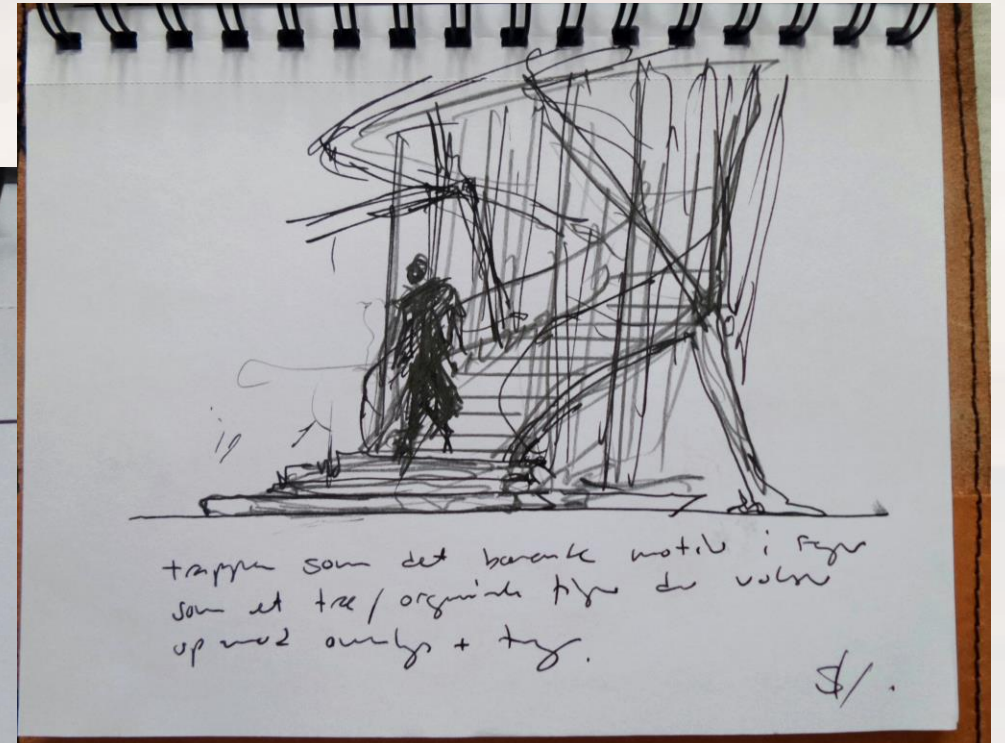 trappen som det bærende motiv i
som et træ / organisk figur der vokser
op mod ovenlys +